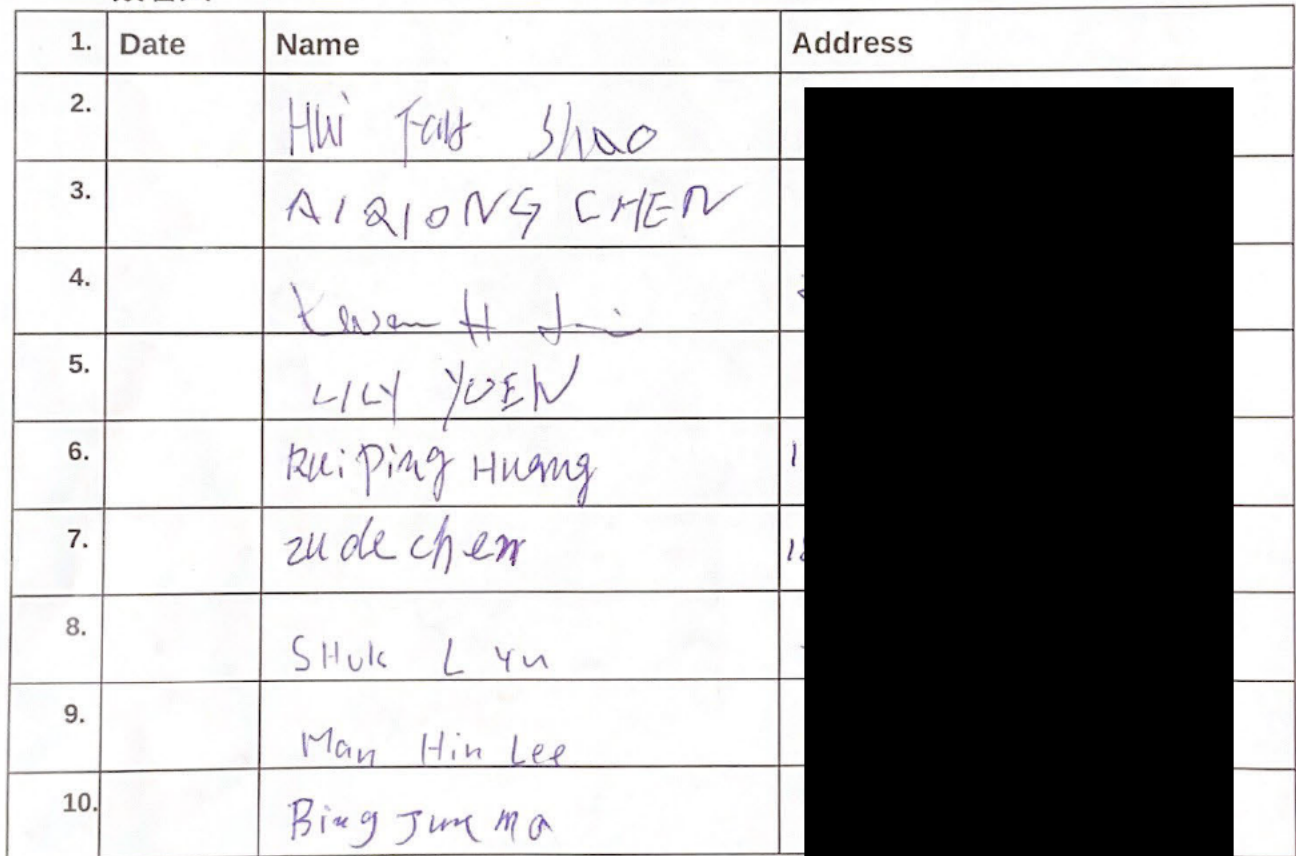 1. Date Name Address
2. Hui Shao
3. AIQIONG CHEN
4. H
5. LILY YUEN
6. Ruiping Huang
7. zude chen
8. SHuk L Yu
9. Man Hin Lee
10. Bing Jun Ma